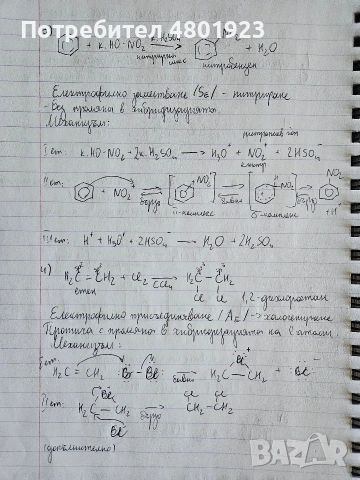 Потребител 4801923
+ к. HO-NO2 к. H2SO4 + H2O
нитробензен
Електрофилно заместване /SE/ - нитриране
- без промяна в хибридизацията
Механизъм:
I ет: к. HO-NO2 + 2к. H2SO4 → H3O+ + NO2+ + 2HSO4-
II ет: + NO2+ бързо бавно бързо NO2 + H+
π-комплекс σ-комплекс
III ет: H+ + H3O+ + 2HSO4- → H2O + 2H2SO4
4) H2C = CH2 + Cl2 → CCl4 H2C - CH2
етен Cl Cl 1,2-дихлоретан
Електрофилно присъединяване /AE/ -> халогениране
Протича с промяна в хибридизацията на C атоми.
Механизъм:
I ет: H2C = CH2 + Cl - Cl: бавно H2C - CH2 + :Cl:-
II ет: H2C - CH2 бързо CH2 - CH2
(допълнително)
BAZAR